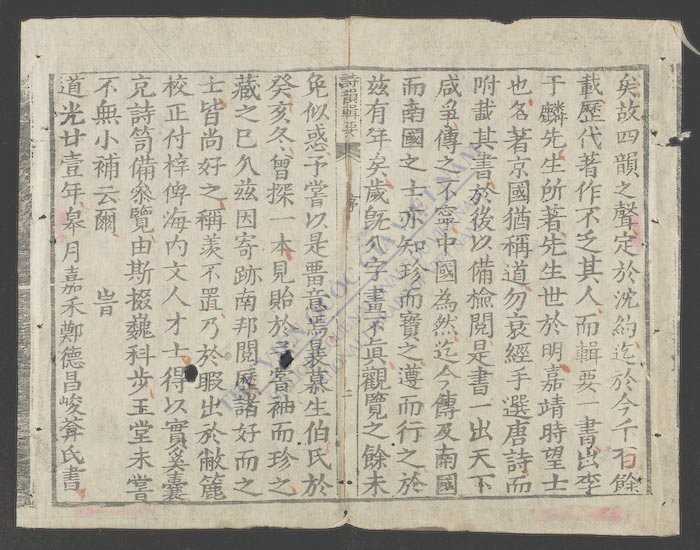 矣故四韻之聲定於沈約迄於今千百餘
載歷代著作不乏其人而輯要一書出李
于麟先生所著先生世於明嘉靖時望士
也名著京國猶稱道勿衰經手選唐詩而
咐載其書於後以備檢閱是書一出天下
咸爭傳之不寧中國為然迄今傳及南國
而南國之士亦知珍而寶之遵而行之於
玆有年矣歲旣久字畫不真觀覽之餘未
詩韻輯要 序 二
免似惑予嘗以是嗇音焉曩慕生伯氏於
癸亥冬曾探一本見貽於予嘗袖而珍之
藏之已久玆因寄跡南邦閱歷諸好而之
士皆尚好之稱羨不置乃於暇出於敝簏
校正付梓俾海內文人才士得以實奚囊
克詩笥備參覽由斯掇巍科步玉堂未嘗
不無小補云爾 旹
道光廿壹年皋月嘉禾鄭德昌峻葊氏書
THƯ VIỆN QUỐC GIA VIỆT NAM